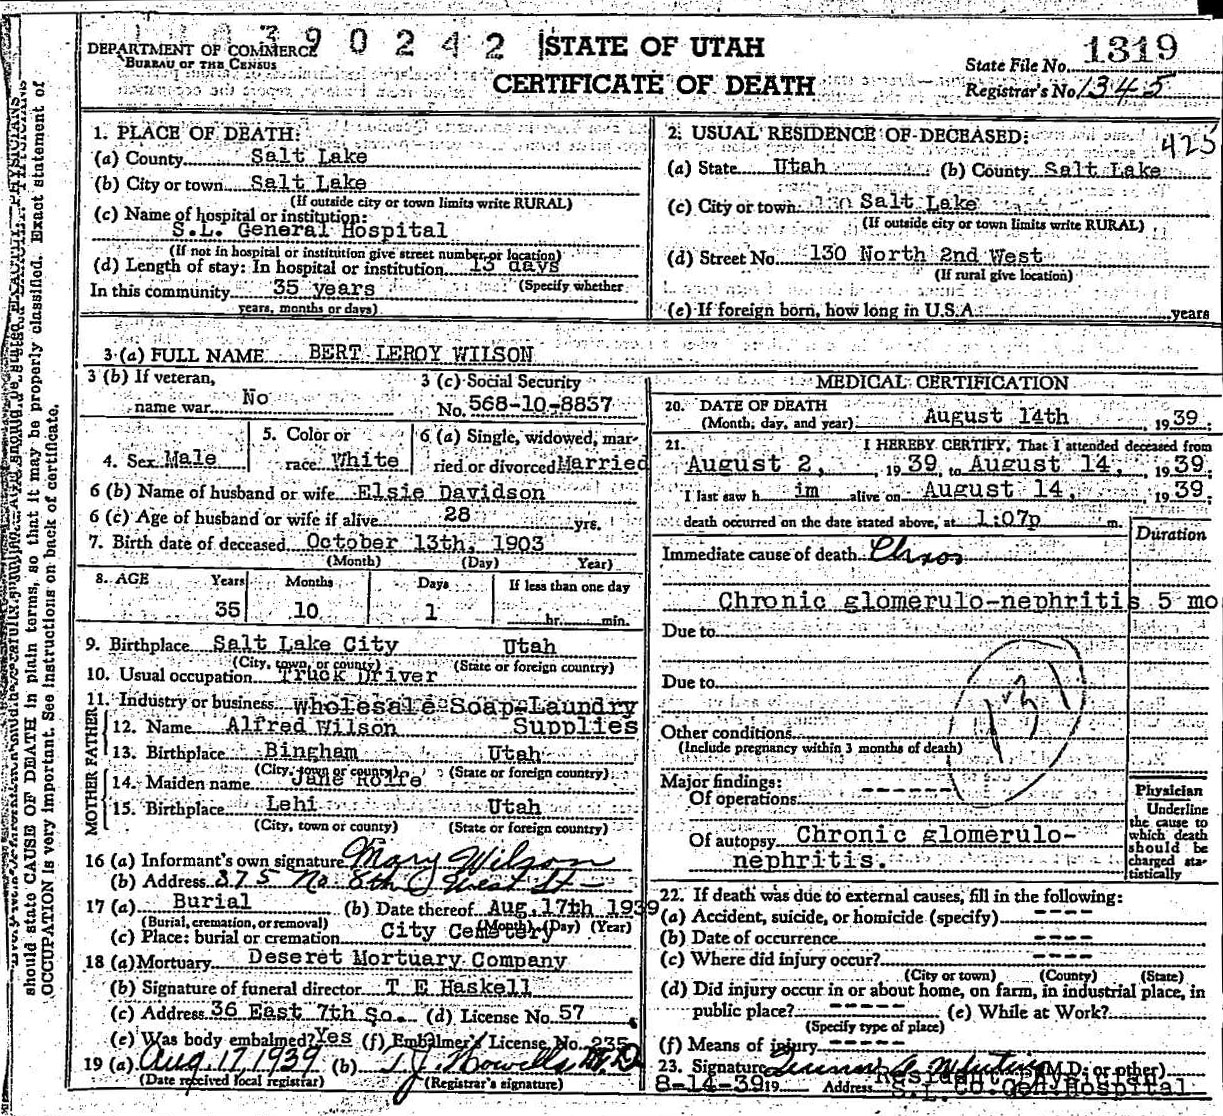 390242
DEPARTMENT OF COMMERCE
BUREAU OF THE CENSUS
STATE OF UTAH
CERTIFICATE OF DEATH
State File No. 1319
Registrar's No. 1345
425
should state CAUSE OF DEATH in plain terms, so that it may be properly classified. Exact statement of
OCCUPATION is very important. See instructions on back of certificate.
1. PLACE OF DEATH:
(a) County Salt Lake
(b) City or town Salt Lake
(If outside city or town limits write RURAL)
(c) Name of hospital or institution:
S.L. General Hospital
(If not in hospital or institution give street number or location)
(d) Length of stay: In hospital or institution 13 days
(Specify whether
In this community 35 years
years, months or days)
2. USUAL RESIDENCE OF DECEASED:
(a) State Utah (b) County Salt Lake
(c) City or town 130 Salt Lake
(If outside city or town limits write RURAL)
(d) Street No. 130 North 2nd West
(If rural give location)
(e) If foreign born, how long in U.S.A. years
3 (a) FULL NAME BERT LEROY WILSON
3 (b) If veteran,
name war No
3 (c) Social Security
No. 568-10-8837
4. Sex Male
5. Color or
race White
6 (a) Single, widowed, mar-
ried or divorced Married
6 (b) Name of husband or wife Elsie Davidson
6 (c) Age of husband or wife if alive 28 yrs.
7. Birth date of deceased October 13th, 1903
(Month) (Day) Year)
8. AGE Years Months Days If less than one day
35 10 1 hr. min.
9. Birthplace Salt Lake City Utah
(City, town, or county) (State or foreign country)
10. Usual occupation Truck Driver
11. Industry or business Wholesale Soap-Laundry
Supplies
FATHER
12. Name Alfred Wilson
13. Birthplace Bingham Utah
(City, town or county) (State or foreign country)
MOTHER
14. Maiden name Jane Rolfe
15. Birthplace Lehi Utah
(City, town or county) (State or foreign country)
16 (a) Informant's own signature Mary Wilson
(b) Address 375 No 8th West St
17 (a) Burial (b) Date thereof Aug. 17th 1939
(Burial, cremation, or removal) (Month) (Day) (Year)
(c) Place: burial or cremation City Cemetery
18 (a) Mortuary Deseret Mortuary Company
(b) Signature of funeral director T E Haskell
(c) Address 36 East 7th So. (d) License No. 57
(e) Was body embalmed? Yes (f) Embalmer's License No. 235
19 (a) Aug. 17, 1939 (b) T J Howells M.D.
(Date received local registrar) (Registrar's signature)
MEDICAL CERTIFICATION
20. DATE OF DEATH
(Month, day, and year) August 14th 1939
21. I HEREBY CERTIFY, That I attended deceased from
August 2, 1939, to August 14, 1939
I last saw him alive on August 14, 1939
death occurred on the date stated above, at 1:07p m.
Duration
Immediate cause of death
Chronic glomerulo-nephritis 5 mo
Due to
Due to
131
Other conditions
(Include pregnancy within 3 months of death)
Major findings:
Of operations -----
Of autopsy Chronic glomerulo-
nephritis.
Physician
Underline
the cause to
which death
should be
charged sta-
tistically
22. If death was due to external causes, fill in the following:
(a) Accident, suicide, or homicide (specify) ----
(b) Date of occurrence ----
(c) Where did injury occur? ----
(City or town) (County) (State)
(d) Did injury occur in or about home, on farm, in industrial place, in
public place? ----- (e) While at Work?
(Specify type of place)
(f) Means of injury -----
23. Signature (M.D. or other)
Resident
8-14-39 19 Address S.L. Co. Gen. Hospital